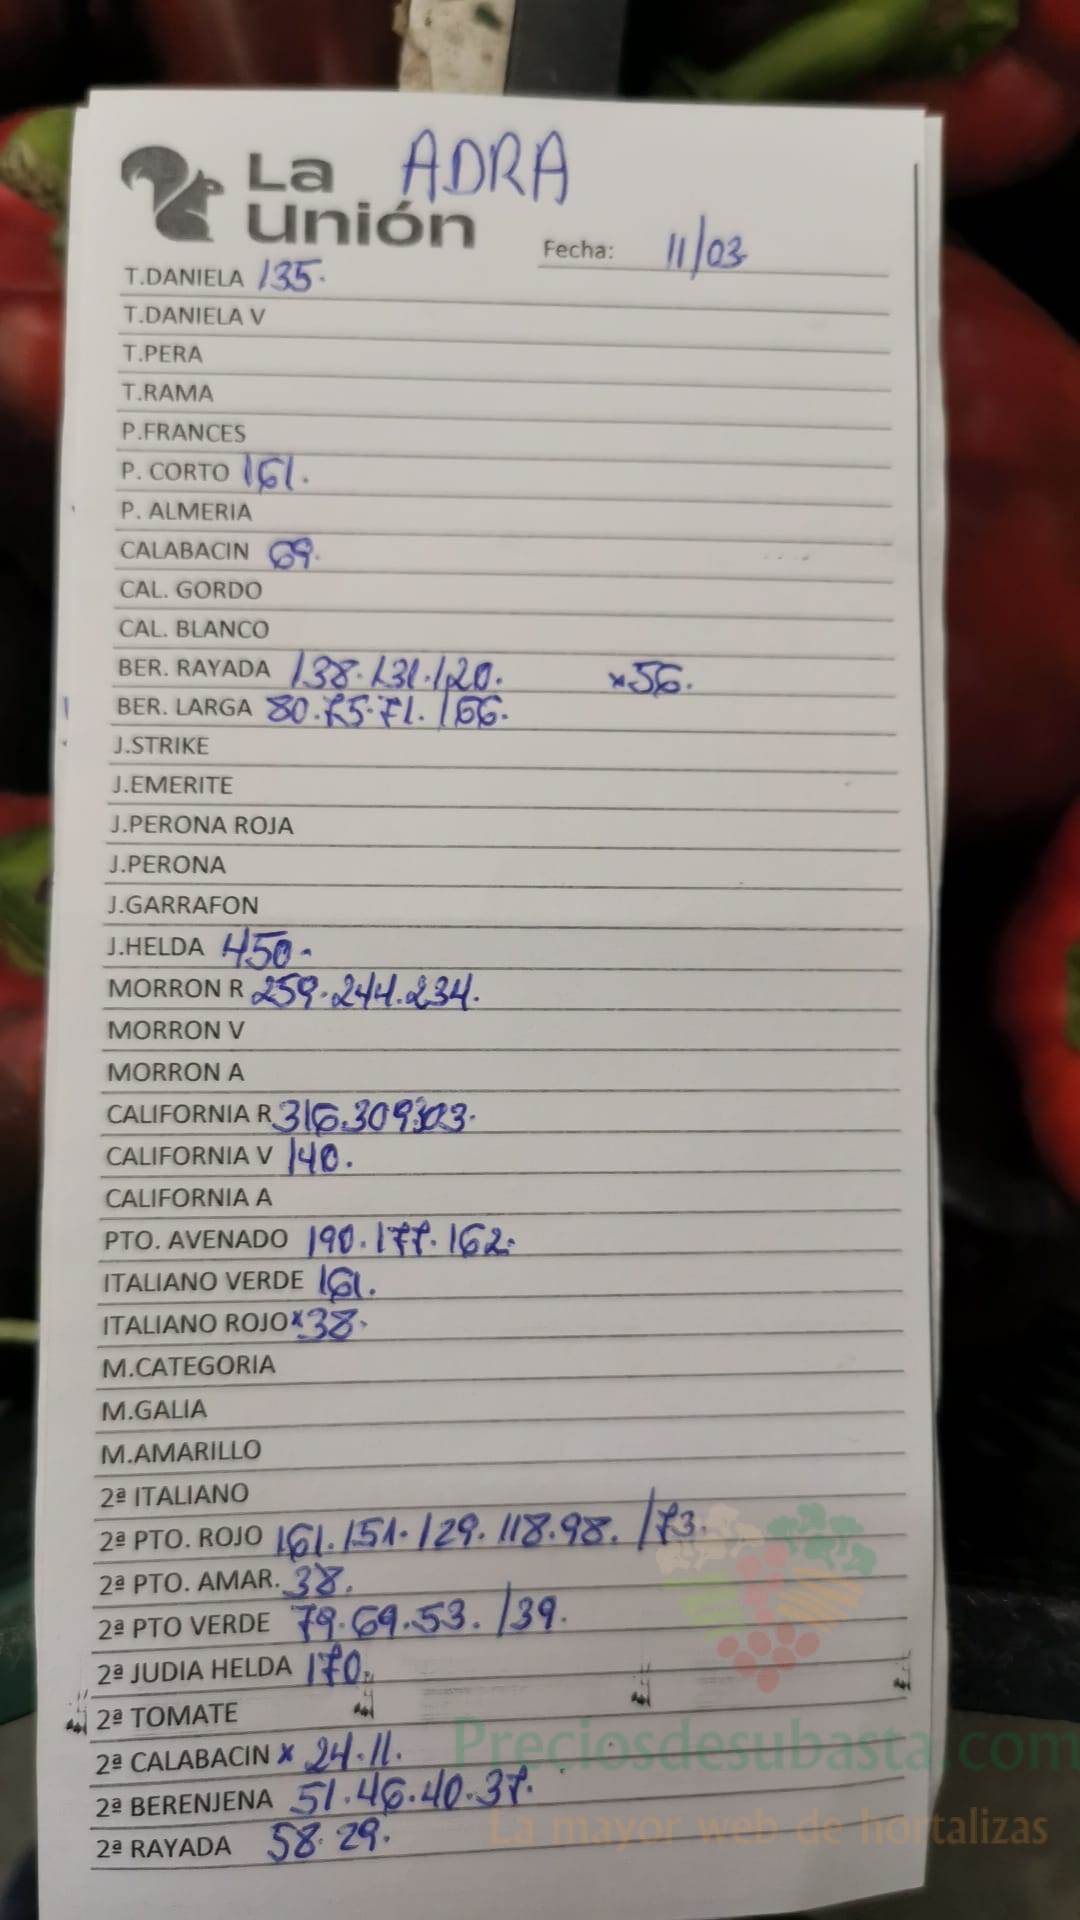 ADRA
La
Unión
Fecha: 11/03
T.DANIELA 135.
T.DANIELA V
T.PERA
T.RAMA
P.FRANCES
P. CORTO 161.
P. ALMERIA
CALABACIN 69.
CAL. GORDO
CAL. BLANCO
BER. RAYADA 138.131.120. x56.
BER. LARGA 80.75.71./66.
J.STRIKE
J.EMERITE
J.PERONA ROJA
J.PERONA
J.GARRAFON
J.HELDA 450-
MORRON R 259.244.234.
MORRON V
MORRON A
CALIFORNIA R 316.309.303.
CALIFORNIA V 140.
CALIFORNIA A
PTO. AVENADO 190.177.162.
ITALIANO VERDE 161.
ITALIANO ROJO x38.
M.CATEGORIA
M.GALIA
M.AMARILLO
2ª ITALIANO
2ª PTO. ROJO 161.151.129.118.98./73.
2ª PTO. AMAR. 38.
2ª PTO VERDE 79.69.53./39.
2ª JUDIA HELDA 170.
2ª TOMATE
2ª CALABACIN x 24.11.
2ª BERENJENA 51.46.40.37.
2ª RAYADA 58.29.
Preciosdesubasta.com
La mayor web de hortalizas